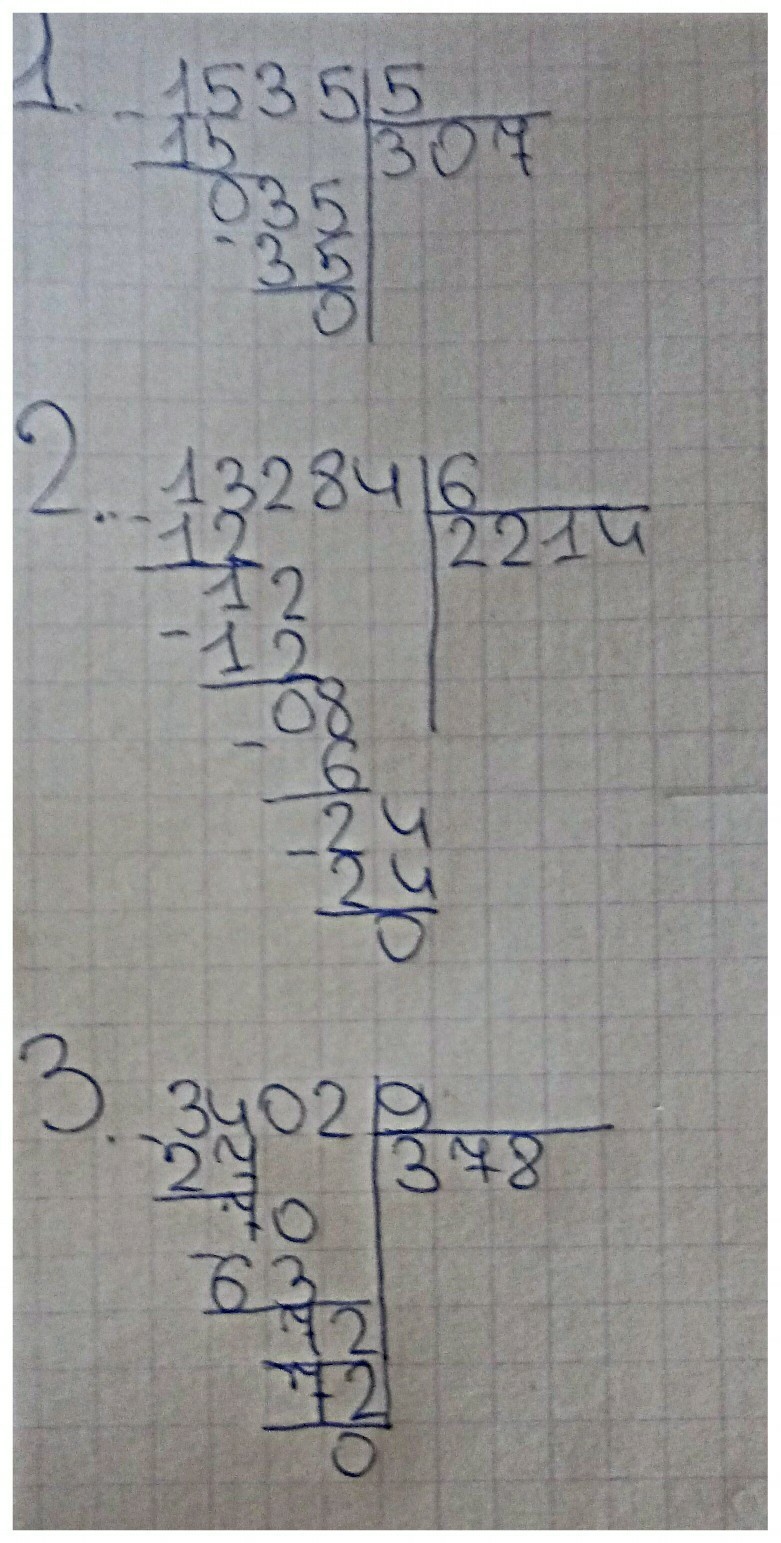 1. -1535|5
15 307
035
-35
0
2. -13284|6
12 2214
12
-12
08
-6
24
-24
0
3. -3402|9
27 378
70
-63
72
72
0